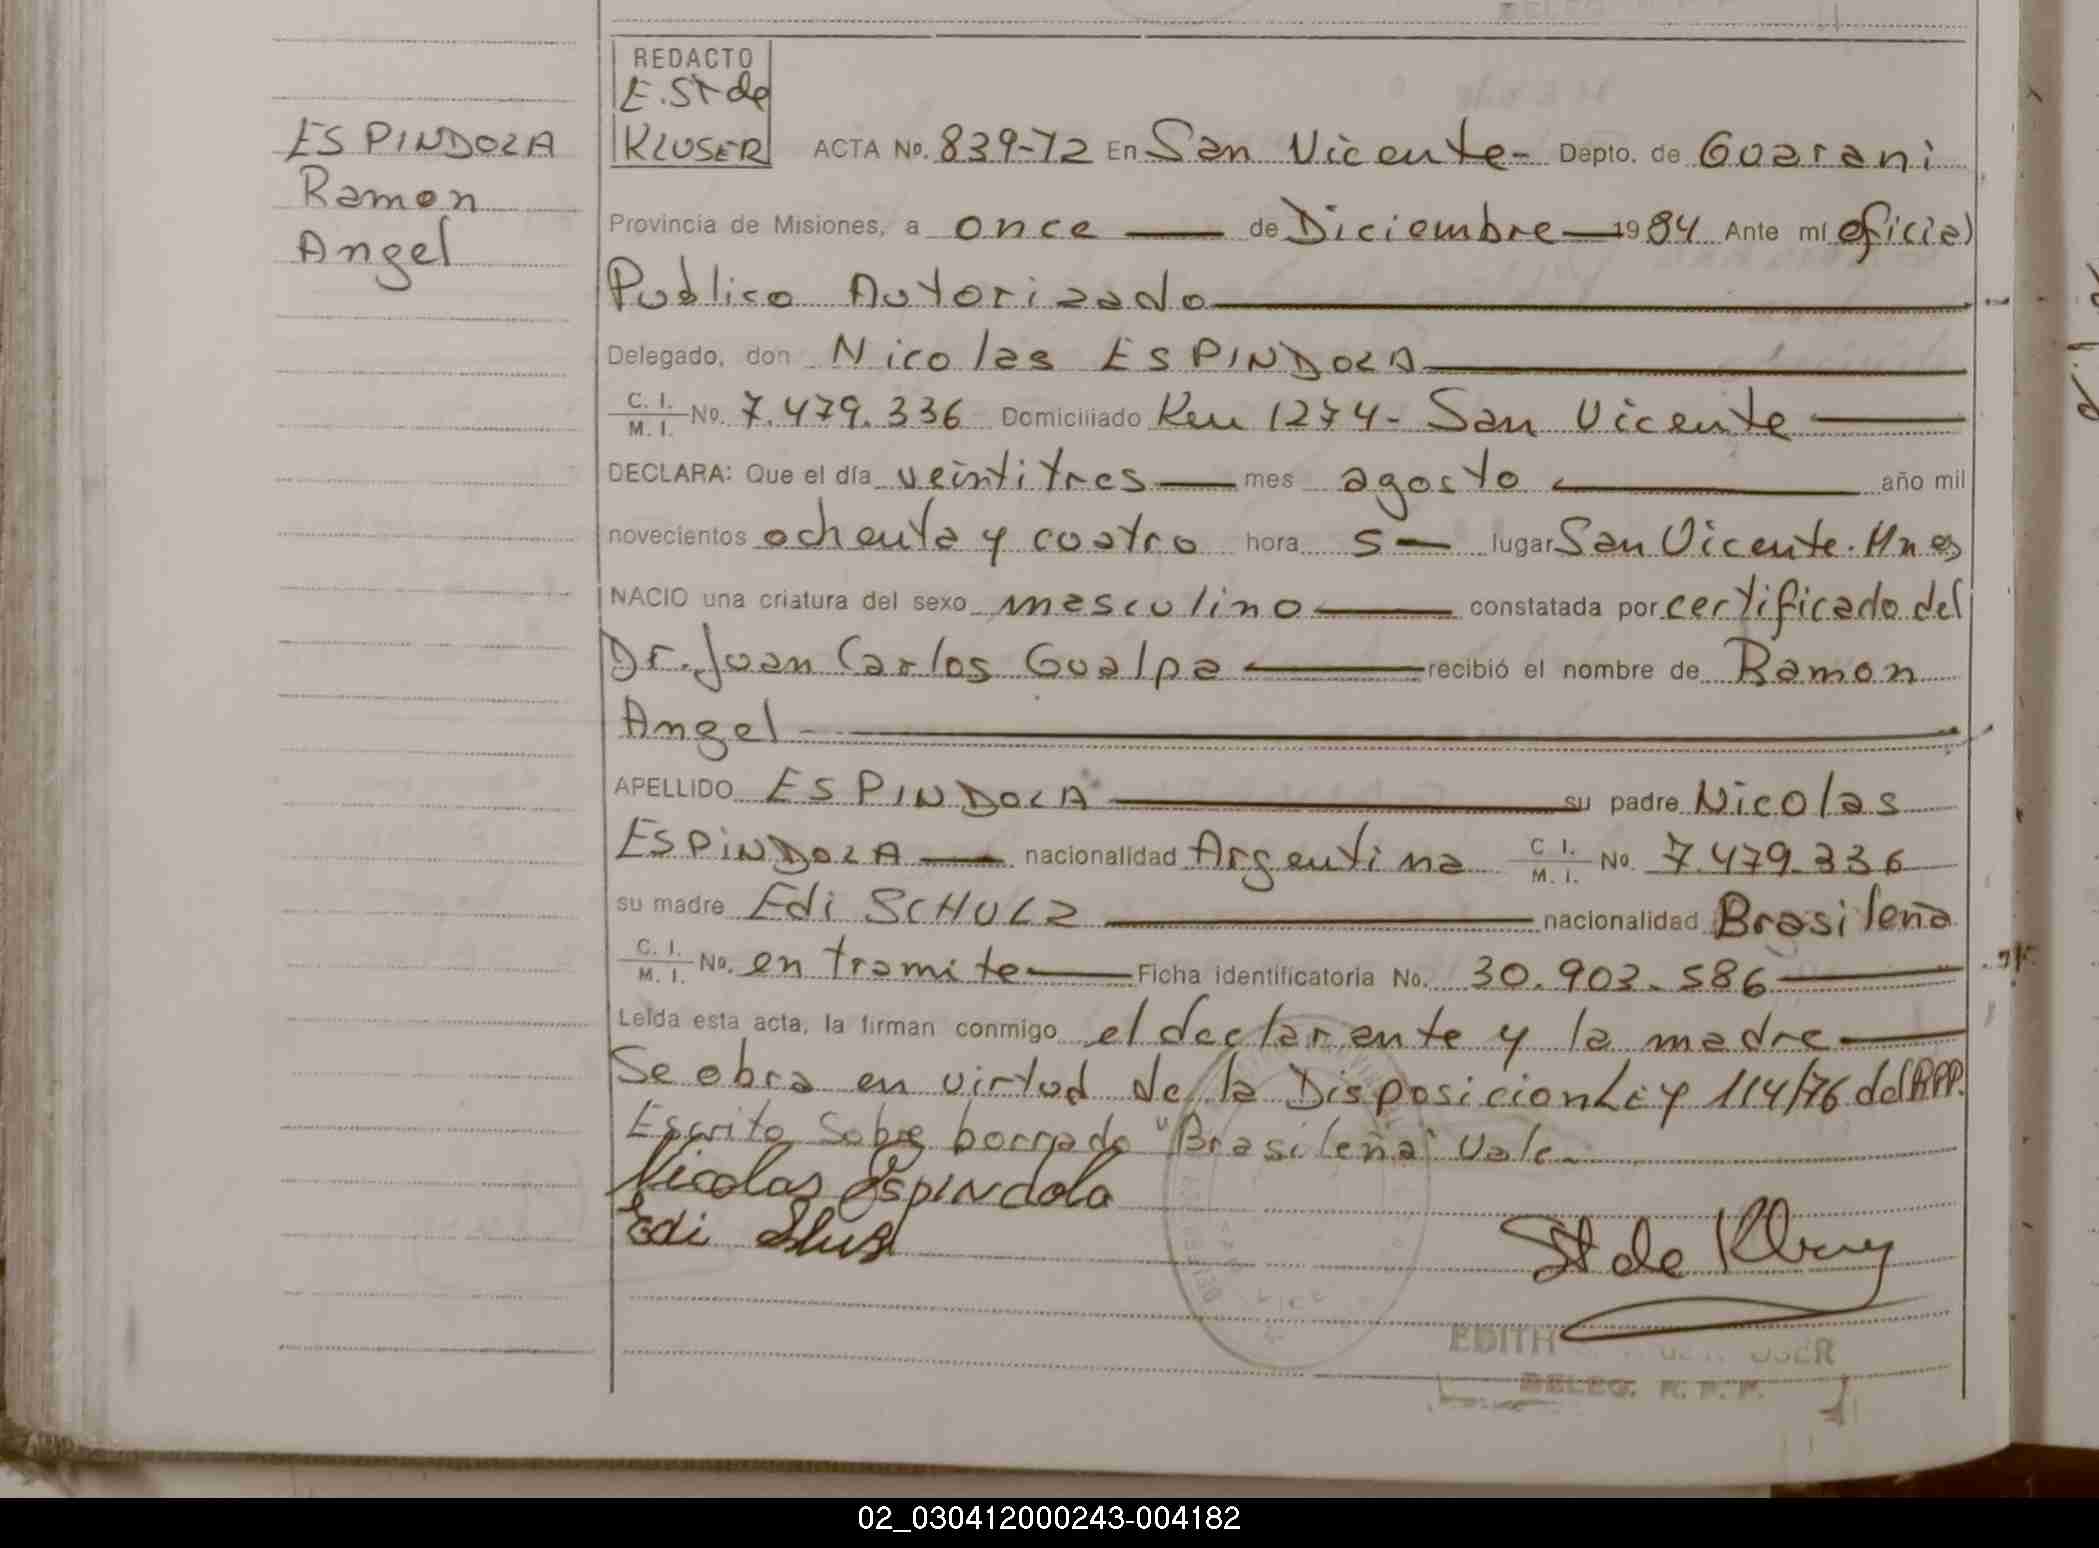 REDACTO
E. St de
KLUSER
ESPINDOLA
Ramon
Angel
ACTA No. 839-T2 En San Vicente- Depto. de Guarani
Provincia de Misiones, a once de Diciembre 1984 Ante mí oficial
Publico Autorizado
Delegado, don Nicolas ESPINDOLA
C. I. M. I. No. 7.479.336 Domiciliado Km 1274- San Vicente
DECLARA: Que el día veintitres mes agosto año mil
novecientos ochenta y cuatro hora 5 lugar San Vicente. Mnes
NACIO una criatura del sexo masculino constatada por certificado del
Dr. Juan Carlos Gualpa recibió el nombre de Ramon
Angel
APELLIDO ESPINDOLA su padre Nicolas
ESPINDOLA nacionalidad Argentina C. I. M. I. No. 7.479.336
su madre Edi SCHULZ nacionalidad Brasileña
C. I. M. I. No. en tramite Ficha identificatoria No. 30.903.586
Leída esta acta, la firman conmigo el declarante y la madre
Se obra en virtud de la Disposicion Ley 114/76 del RPP.
Escrito sobre borrado "Brasileña" Vale.
Nicolas Espindola
Edi
St de
EDITH
DELEG. R. P. P.
02_030412000243-004182